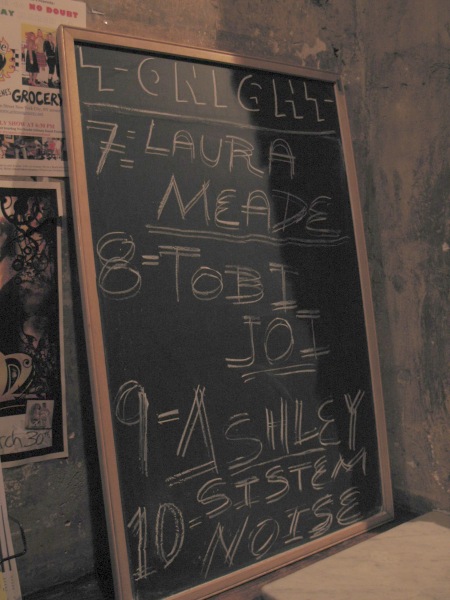 TONIGHT
7= LAURA
MEADE
8= TOBI
JOI
9= ASHLEY
10= SISTEM
NOISE
NO DOUBT
GROCERY